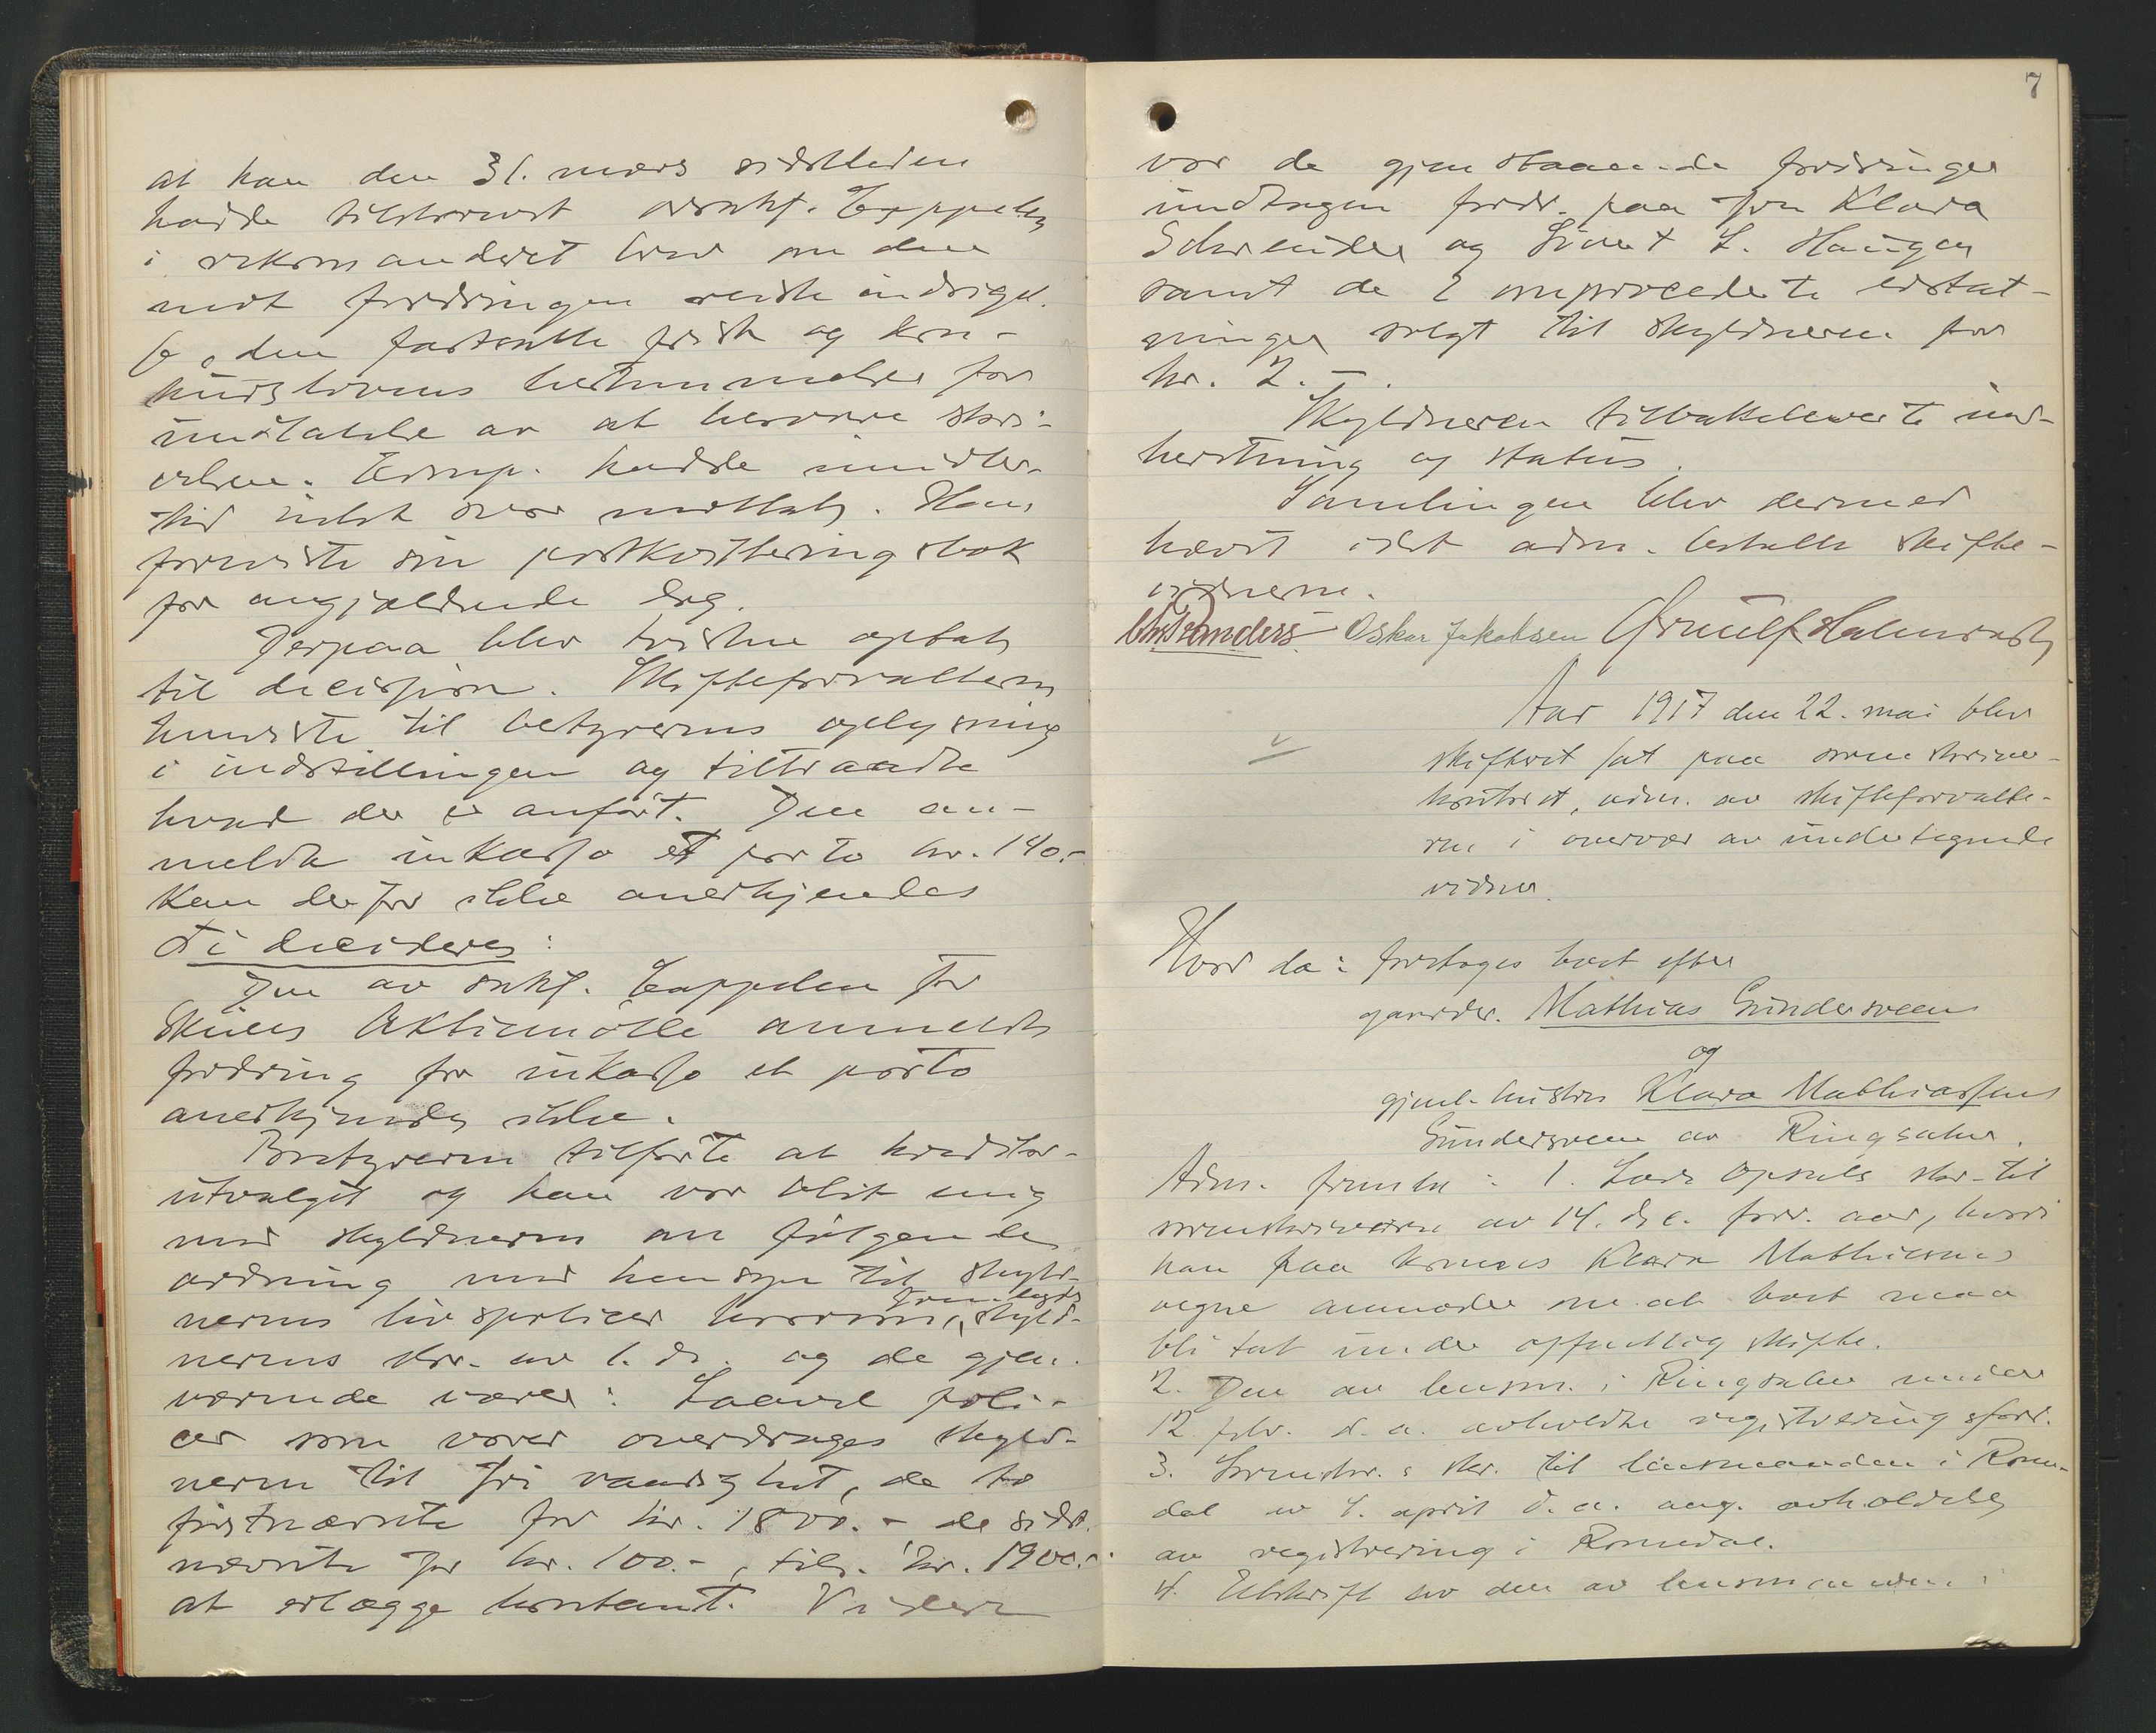 at han den 31. mars sidstleden
hadde tilskrevet orsakf. Cappelen
i rekomanderet brev om den
mot fordringen reiste indsigel-
se, den fastsatte frist og kon-
kurslovens bestemmelse for
undlatelse av at besvare skri-
velsen. Komp. hadde imidler-
tid intet svar mottat. Han
foreviste sin postkvitteringsbok
for angjældende brev.
Derpaa blev tvisten optat
til decision. Skifteforvalteren
henviste til bestyrerens oplysning
i indstillingen og tiltraadte
hvad der er anført. Den an-
meldte inkasso et porto kr. 140.-
kan derfor ikke anerkjendes
Ti decideres:
Den av sakf. Cappelen for
Skiens Aktiemølle anmeldte
fordring for inkasso et porto
anerkjendes ikke.
Bestyreren tilførte at kreditor-
utvalget og han var blit enig
med skyldneren om følgende
ordning med hensyn til skyld-
nerens livspolicer hvorom fremlagdes skyld-
nerens skr. av 1. ds. og de gjen-
værende varer: Saavel poli-
cer som varer overdrages skyld-
neren til fri raadighet, de to
førstnævnte for kr. 1800.- de sidst-
nævnte for kr. 100.-, tils. kr. 1900.-
at erlægge kontant. Videre
7
var de gjenstaaende fordringer
undtagen fordr. paa fru Klara
Schreuder og Sivert L. Haugen
samt de 2 omprocederte erstat-
ninger solgt til skyldneren for
kr. 2.-.
Skyldneren tilbakeleverte ind-
beretning og status.
Samlingen blev dermed
hævet idet adm. betalte skifte-
vidnerne.
Chr. Randers Oskar Jakobsen Ørnulf Halmrast
Aar 1917 den 22. mai blev
skifteret sat paa sorenskriver-
kontoret, adm. av skifteforvalte-
ren i overvær av undertegnede
vidner.
Hvor da: foretoges boet efter
gaardbr. Mathias Gundersveen
og
gjenl. hustru Klara Mathiassens
Gundersveen av Ringsaker.
Adm. fremla: 1. Lars Opsals skr. til
sorenskriveren av 14. dec. forr. aar, hvori
han paa konens Klara Mathiesens
vegne anmoder om at boet maa
bli tat under offentlig skifte.
2. Den av lensm. i Ringsaker under
12 febr. d. a. avholdte registreringsforr.
3. Sorenskr.s skr. til lensmanden i Rome-
dal av 4. april d. a. ang. avholdelse
av registrering i Romedal.
4. Utskrift av den av lensmanden i